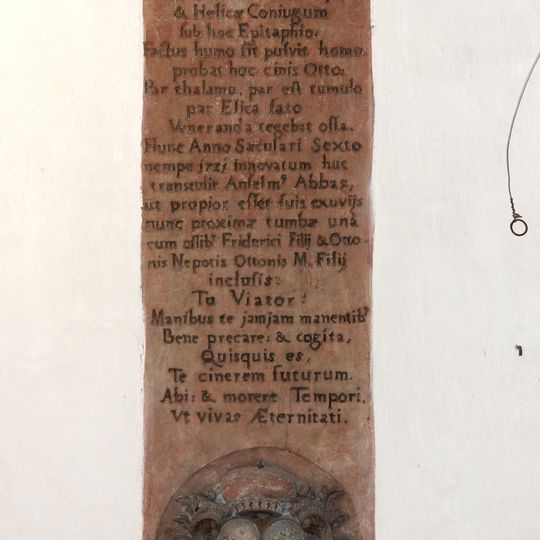 & Helicæ Coniugum
sub hoc Epitaphio:
Factus humo fit pulvis homo,
probat hoc cinis Otto:
Par thalamo, par est tumulo
par Elica fato
Veneranda tegebat ossa.
Hunc Anno Sæculari Sexto
nempe 1721 innovatum huc
transtulit Anselmꝰ Abbas,
ut propior esset suis exuvijs
nunc proximæ tumbæ unà
cum ossibꝰ Friderici Filij & Otto-
nis Nepotis Ottonis M. Filij
inclusis:
Tu Viator!
Manibus te jamjam manentibꝰ
Bene precare: & cogita,
Quisquis es,
Te cinerem futurum.
Abi: & morere Tempori,
Ut vivas Æternitati.